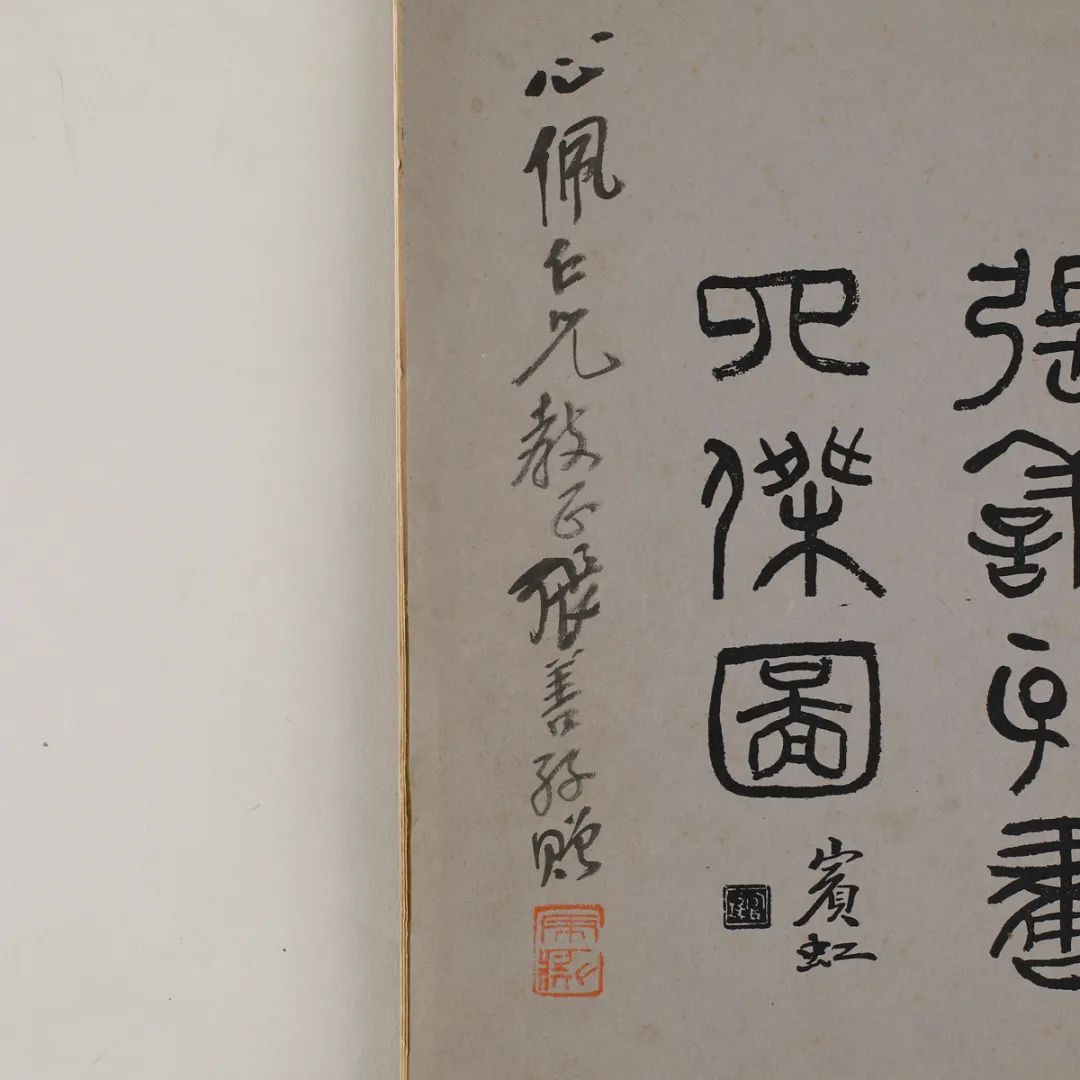 張善子畫
四傑圖
賓虹
心佩仁兄教正張善孖贈